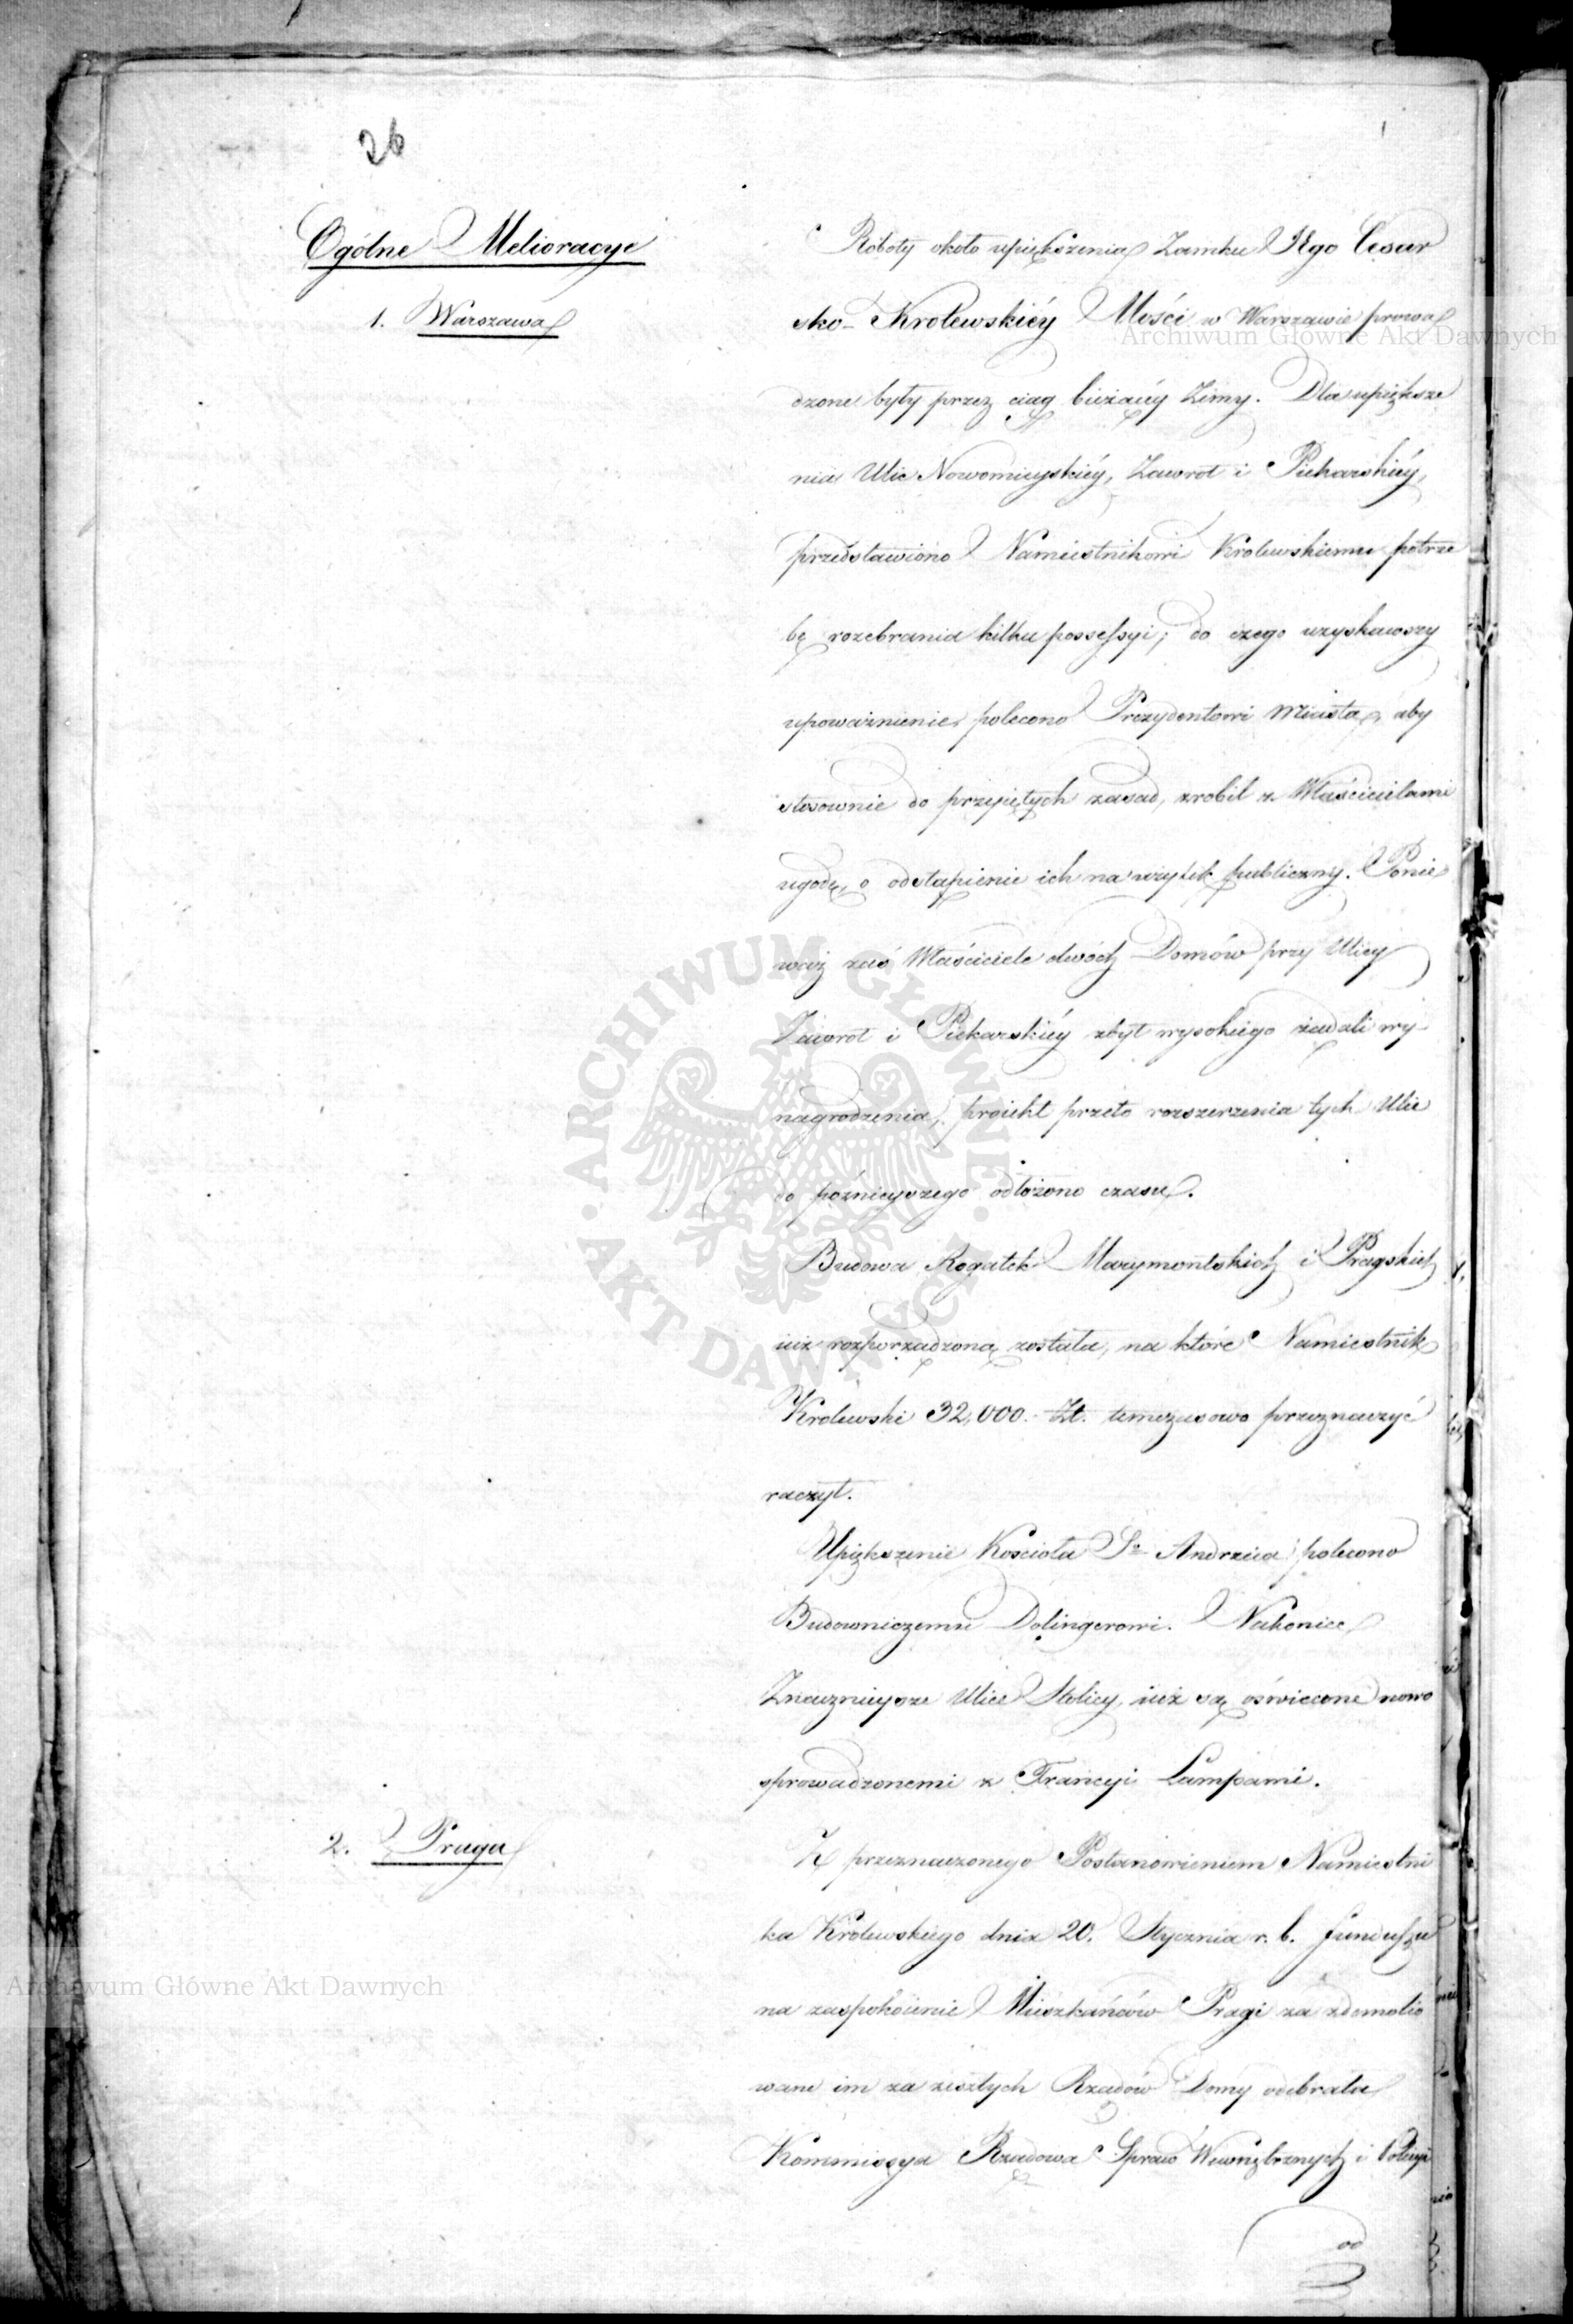 26
Ogólne Melioracye
1. Warszawa
Roboty około upiększenia Zamku JEgo Cesar
sko-Krolewskiéy Mości w Warszawie prowa
dzone były przez ciąg bieżącéy Zimy. Dla upiększe
nia Ulic Nowomieyskiéy, Zawrot i Piekarskiéy,
przedstawiono Namiestnikowi Krolewskiemu potrze
bę rozebrania kilku possessyi; do czego uzyskawszy
upoważnienie, polecono Prezydentowi Miasta, aby
stosownie do przyiętych zasad, zrobił z Właścicielami
ugodę, o odstąpienie ich na użytek publiczny. Ponie
waż zaś Właściciele dwóch Domów przy Ulicy
Zawrot i Piekarskiéy zbyt wysokiego żądali wy-
nagrodzenia, proiekt przeto rozszerzenia tych Ulic
do poźnieyszego odłożono czasu.
Budowa Rogatek Marymontskich i Pragskich
iuż rozporządzoną została, na które Namiestnik
Krolewski 32,000. Zł. temczasowo przeznaczyć
raczył.
Upiększenie Kościoła Sgo Andrzeia polecono
Budowniczemu Dolingerowi. Nakoniec
Znacznieysze Ulice Stolicy, iuż są oświecone nowo
sprowadzonemi z Francyi Lampami.
2. Praga
Z przeznaczonego Postanowieniem Namiestni
ka Krolewskiego dnia 20. Stycznia r. b. funduszu
na zaspokoienie Mieszkańców Pragi za zdemolio
wane im za zeszłych Rządów Domy odebrała
Kommissya Rządowa Spraw Wewnętrznych i Policyi
od
Archiwum Główne Akt Dawnych
Archiwum Główne Akt Dawnych
ARCHIWUM GŁÓWNE AKT DAWNYCH